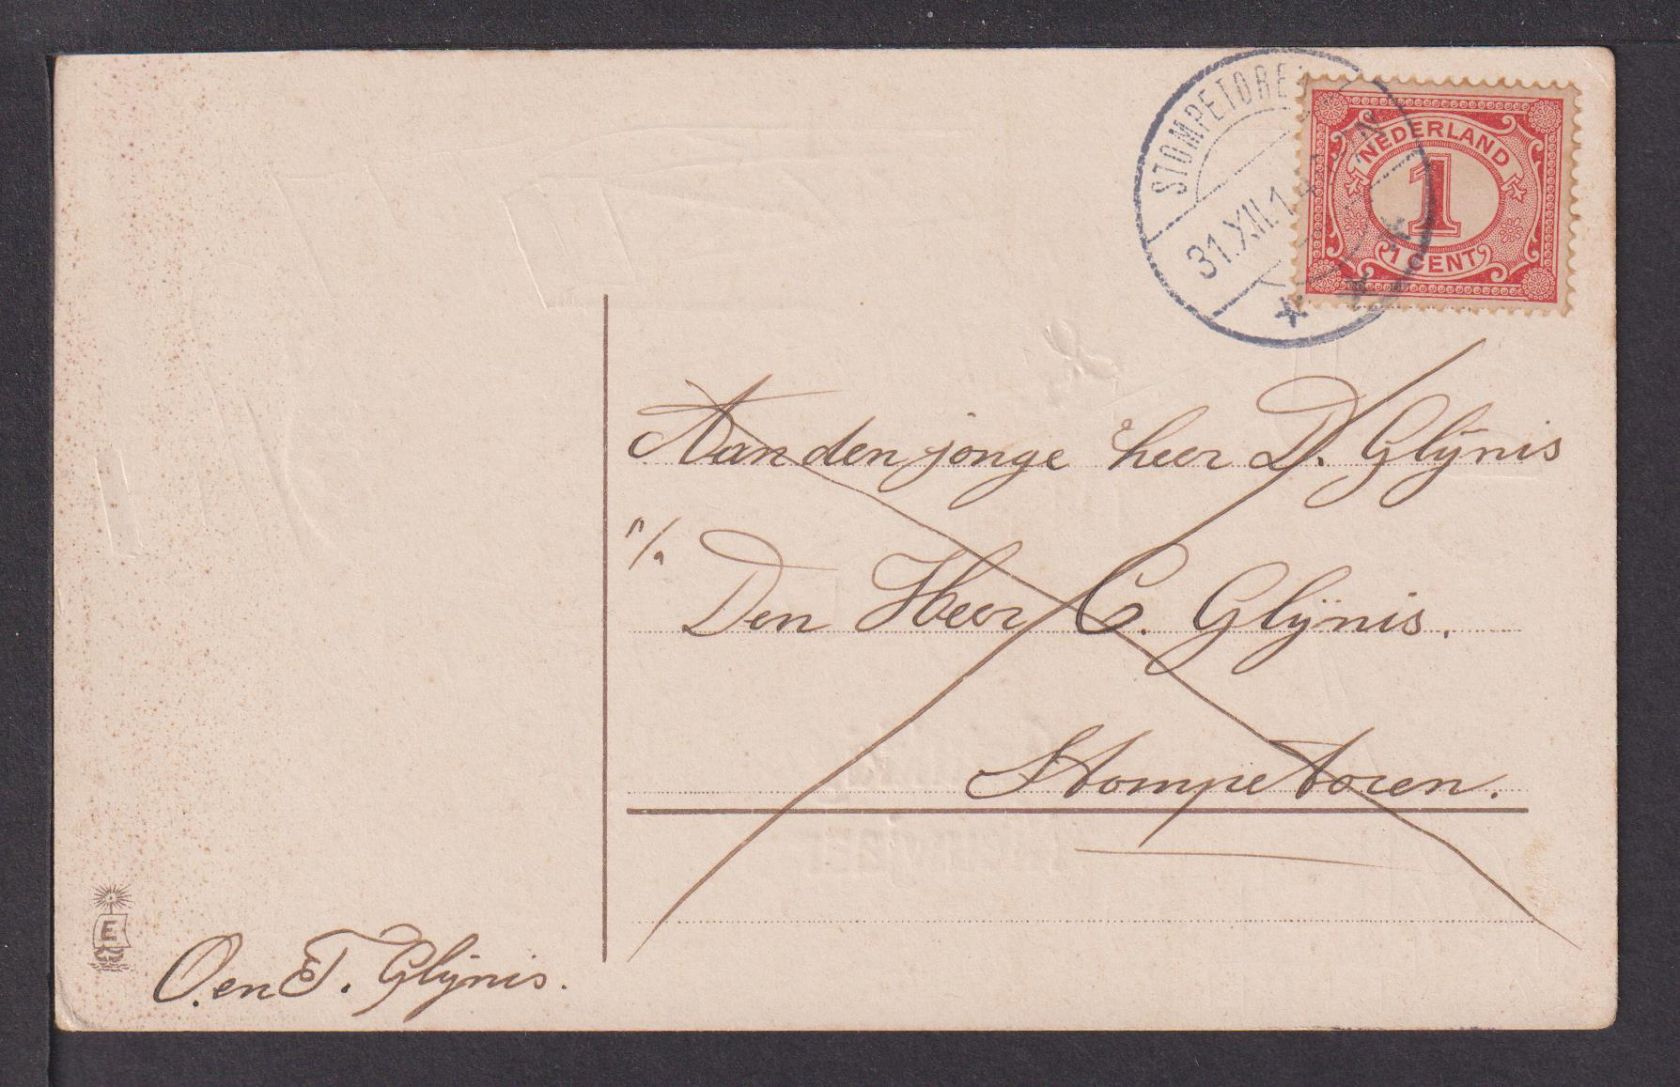 STOMPETOREN
31.XII.1
4-5 N
NEDERLAND
1
1 CENT
Aan den jonge heer D. Glijnis
p/a
Den Heer C. Glijnis.
Stompetoren.
E
O. en T. Glijnis.